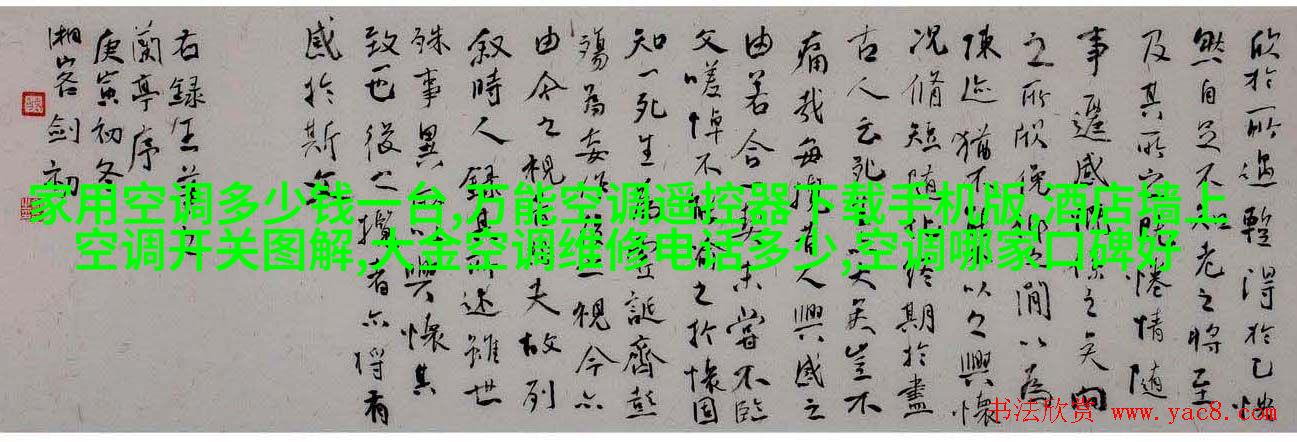 欣於所遇輒得於己快
然自足不知老之將至
及其所之既倦情隨
事遷感慨係之矣向
之所欣俛仰之間以為
陳迹猶不能不以之興懷
況脩短隨化終期於盡
古人云死生亦大矣豈不
痛哉每攬昔人興感之
由若合一契未嘗不臨
文嗟悼不能喻之於懷固
知一死生為虛誕齊彭
殤為妄作後之視今亦
由今之視昔悲夫故列
敘時人錄其所述雖世
殊事異所以興懷其
致一也後之攬者亦將有
感於斯文
右錄王羲之
蘭亭序
庚寅初冬
湘客劍初
家用空调多少钱一台,万能空调遥控器下载手机版,酒店墙上
空调开关图解,大金空调维修电话多少,空调哪家口碑好
书法欣赏 www.yac8.com